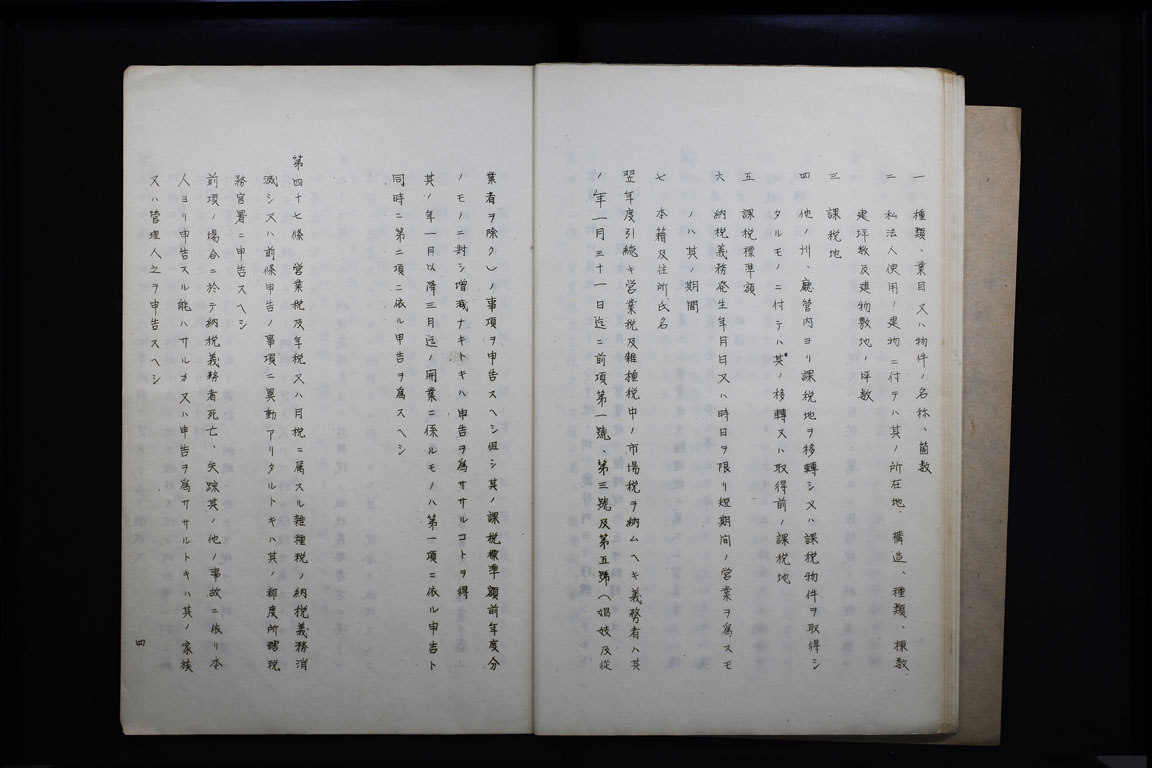 一 種類、業目又ハ物件ノ名称、箇数
二 私法人使用ノ建物ニ付テハ其ノ所在地、構造、種類、棟数、
建坪数及建物敷地ノ坪数
三 課税地
四 他ノ州、廳管内ヨリ課税地ヲ移轉シ又ハ課税物件ヲ取得シ
タルモノニ付テハ其ノ移轉又ハ取得前ノ課税地
五 課税標準額
六 納税義務発生年月日又ハ時日ヲ限リ短期間ノ営業ヲ為スモ
ノハ其ノ期間
七 本籍及住所氏名
翌年度引続キ営業税及雑種税中ノ市場税ヲ納ムヘキ義務者ハ其
ノ年一月三十一日迄ニ前項第一號、第三號及第五號（娼妓及従
業者ヲ除ク）ノ事項ヲ申告スヘシ但シ其ノ課税標準額前年度分
ノモノニ対シ増減ナキトキハ申告ヲ為ササルコトヲ得
其ノ年一月以降三月迄ノ開業ニ係ルモノハ第一項ニ依ル申告ト
同時ニ第二項ニ依ル申告ヲ為スヘシ
第四十七條 営業税及年税又ハ月税ニ属スル雑種税ノ納税義務消
滅シ又ハ前條申告ノ事項ニ異動アリタルトキハ其ノ都度所轄税
務官署ニ申告スヘシ
前項ノ場合ニ於テ納税義務者死亡、失踪其ノ他ノ事故ニ依リ本
人ヨリ申告スル能ハサルカ又ハ申告ヲ為ササルトキハ其ノ家族
又ハ管理人之ヲ申告スヘシ
四